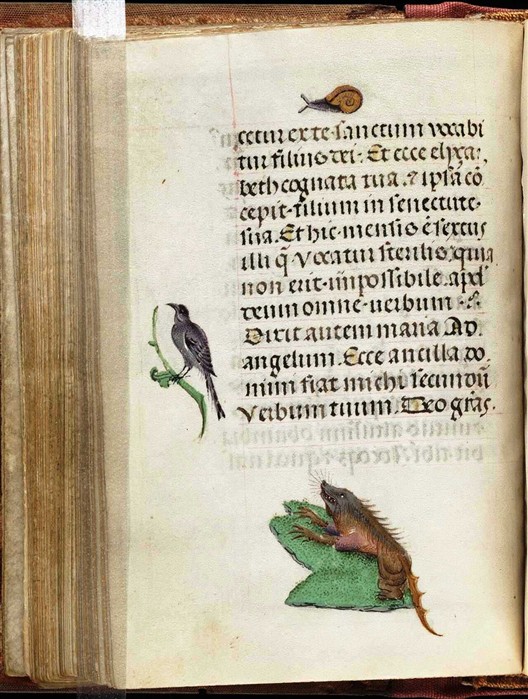 cetur ex te sanctum vocabi
tur filius dei. Et ecce elyza,
beth cognata tua. & ipsa cō
cepit filium in senectute
sua. Et hic mensis ē sextus
illi q̄ vocatur sterilis. quia
non erit impossibile apd̄
deum omne verbum. &.
Dixit autem maria Ad.
angelum. Ecce ancilla do.
mini fiat michi secundū
verbum tuum. Deo gr̄as.